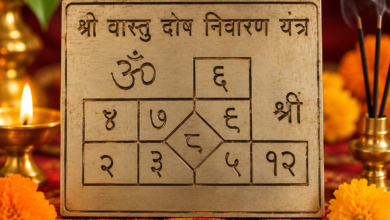 श्री वास्तु दोष निवारण यंत्र
ॐ ६
४ ७ ८ ९ श्री
२ ३ ५ १२